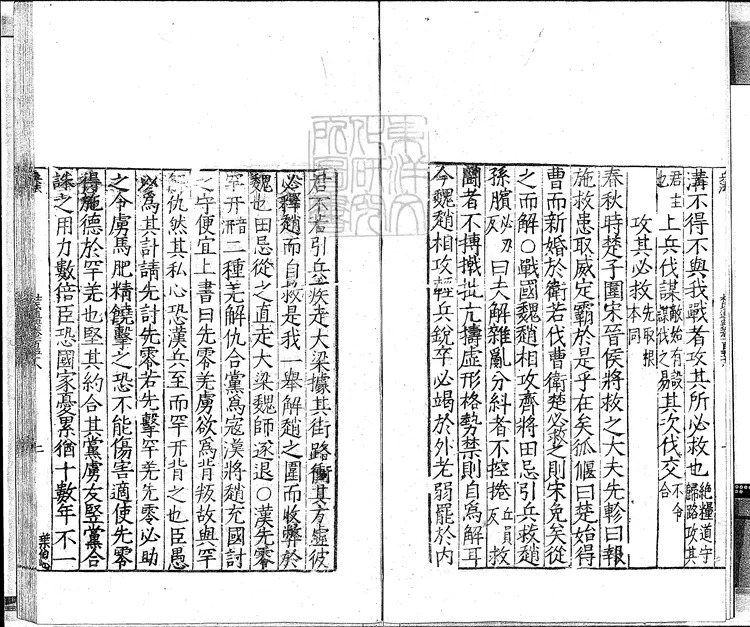 溝不得不與我戰者攻其所必救也絶糧道守歸路攻其
君主也上兵伐謀敵始有設謀伐之易其次伐交不令合
攻其必救先取根本同
春秋時楚子圍宋晉侯將救之大夫先軫曰報
施救患取威定霸於是乎在矣狐偃曰楚始得
曹而新婚於衛若伐曹衛楚必救之則宋免矣從
之而解○戰國魏趙相攻齊將田忌引兵救趙
孫臏必刃反曰夫解雜亂分糾者不控捲丘員反救
鬬者不搏撠批亢擣虛形格勢禁則自為解耳
今魏趙相攻輕兵銳卒必竭於外老弱罷於內
君不若引兵疾走大梁據其街路衝其方虛彼
必釋趙而自救是我一舉解趙之圍而收弊於
魏也田忌從之直走大梁魏師遂退○漢先零
罕开音二種羌解仇合黨為寇漢將趙充國討
之守便宜上書曰先零羌虜欲為背叛故與罕
仇然其私心恐漢兵至而罕开背之也臣愚
必為其計請先討先零若先擊罕羌先零必助
之今虜馬肥糧饒擊之恐不能傷害適使先零
得施德於罕羌也堅其約合其黨虜友堅黨合
誅之用力數倍臣恐國家憂累猶十數年不一